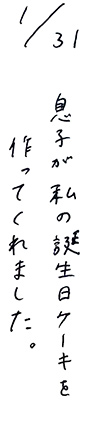 1/31
息子が私の誕生日ケーキを
作ってくれました。